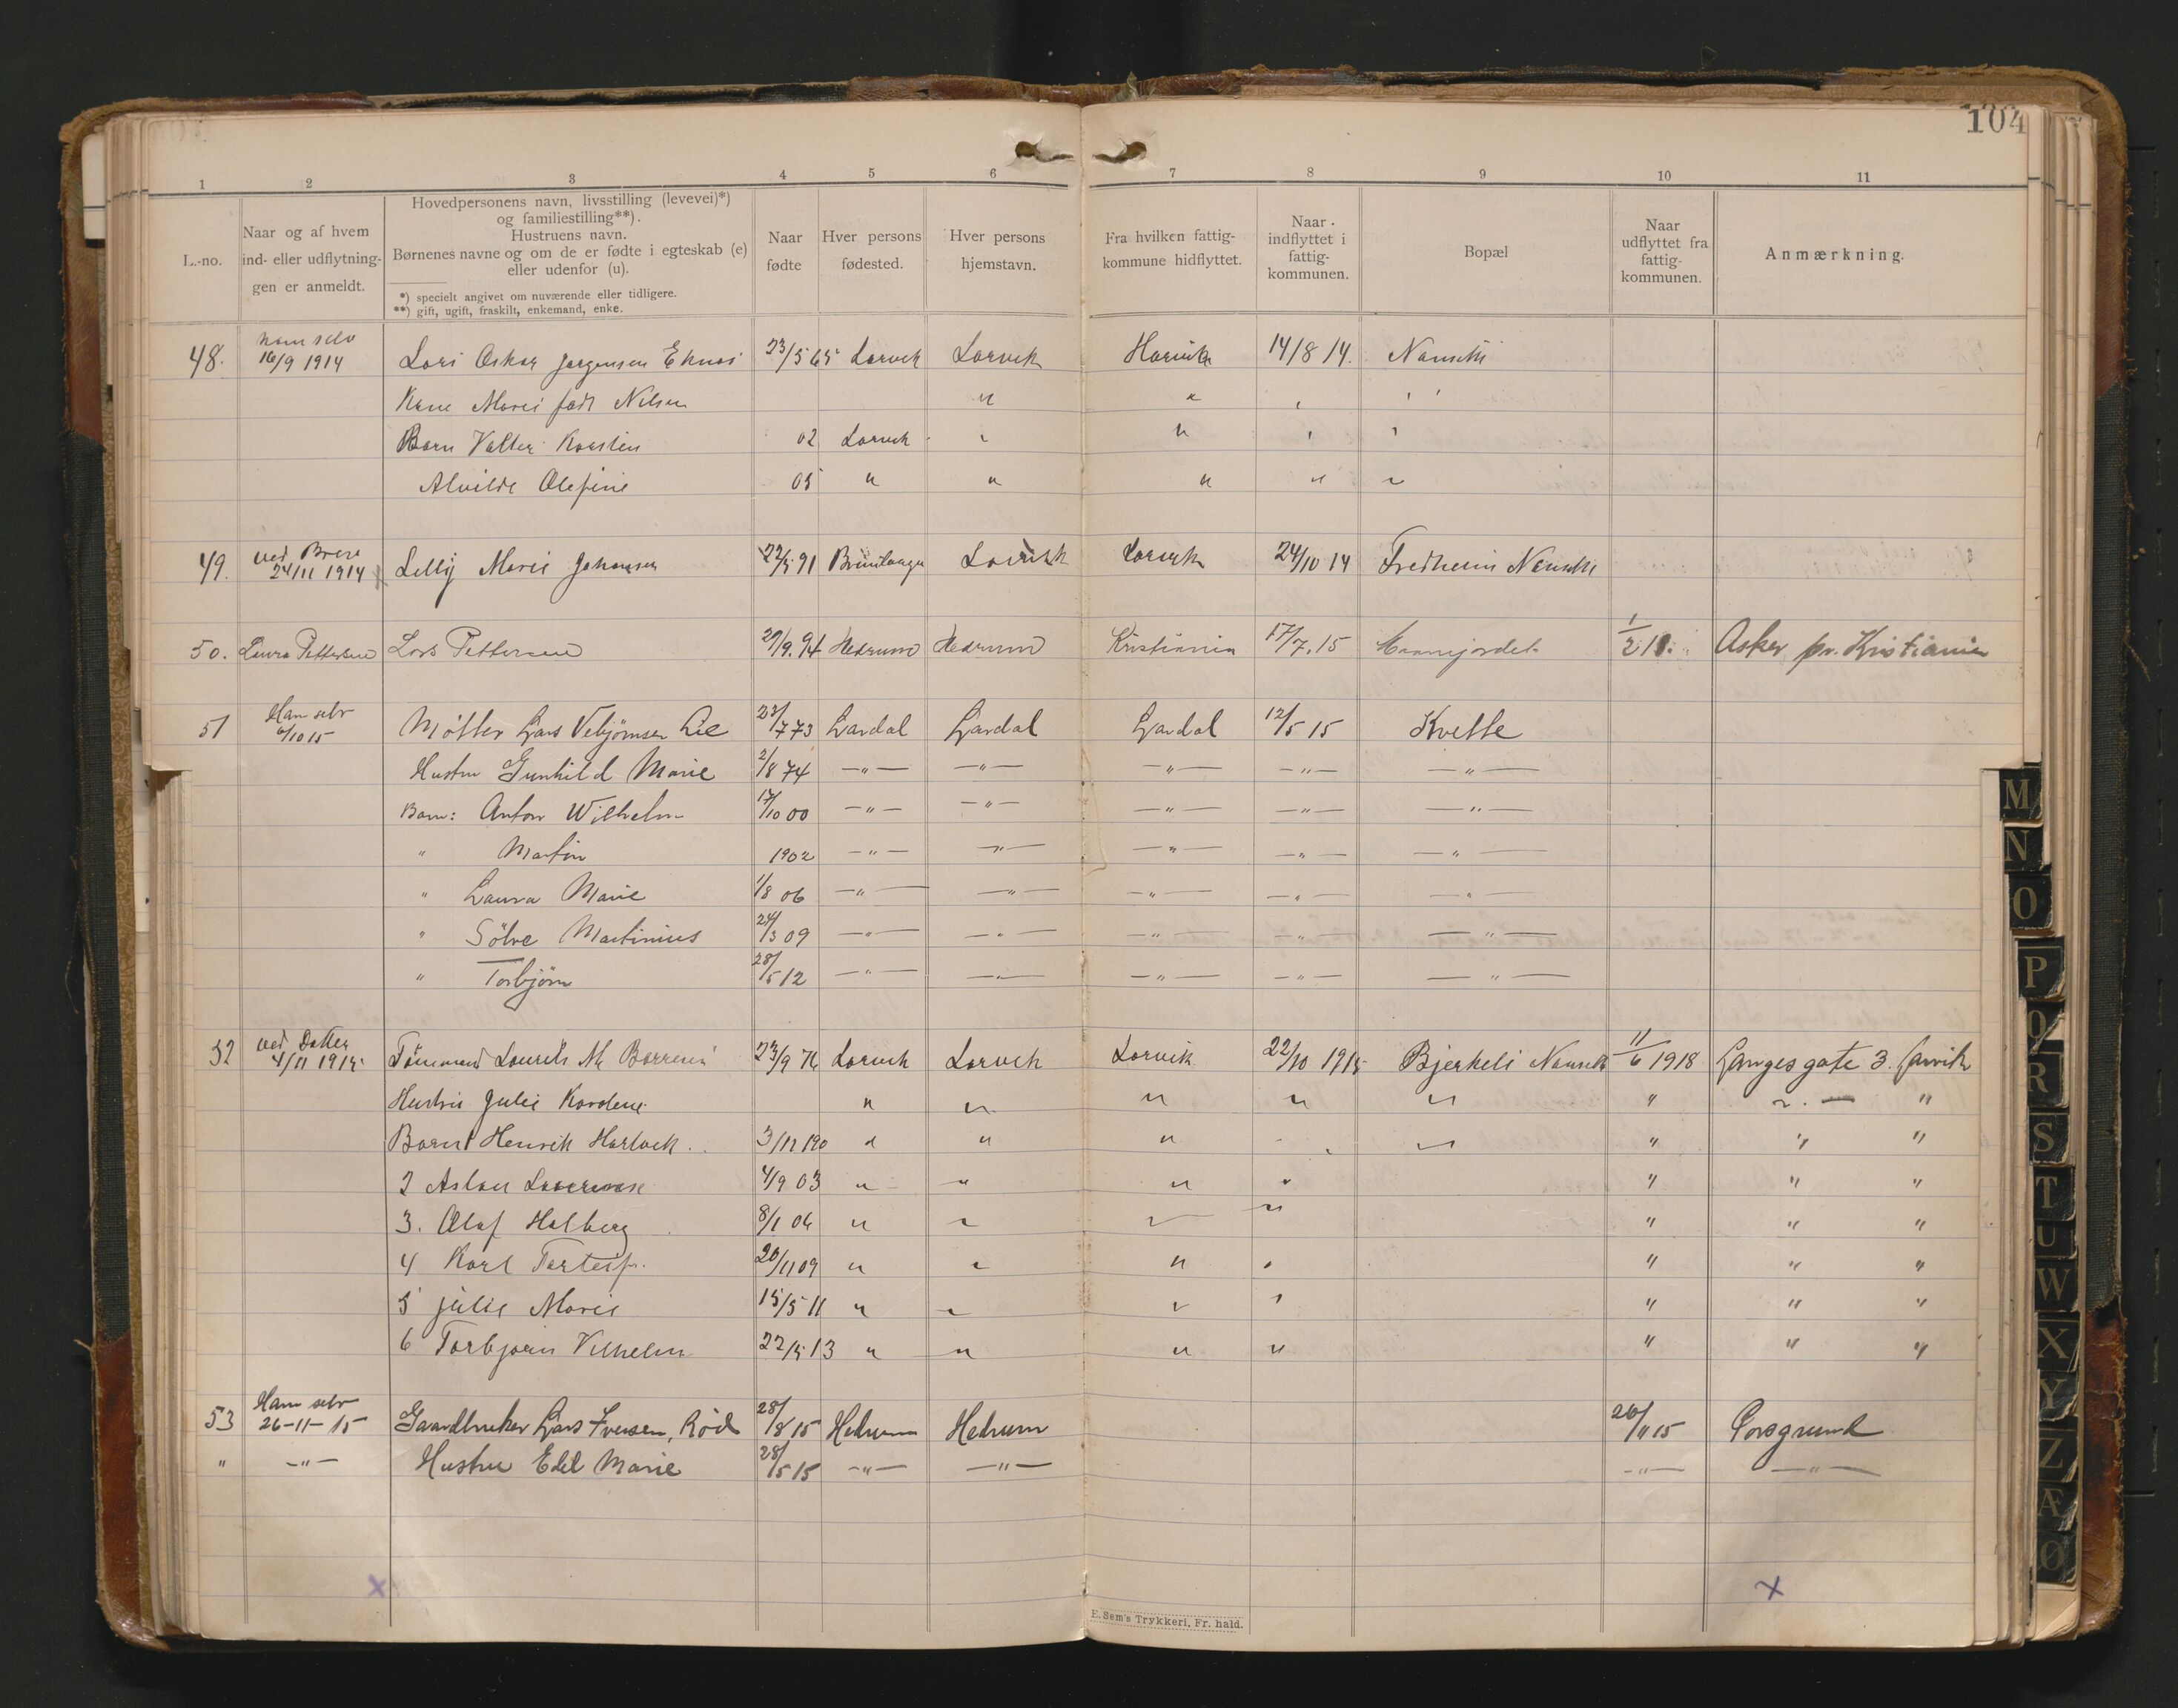 104
1 2 3 4 5 6 7 8 9 10 11
L.-no.
Naar og af hvem
ind- eller udflytnin-
gen er anmeldt.
Hovedpersonens navn, livsstilling (levevei)*)
og familiestilling**).
Hustruens navn.
Børnenes navne og om de er fødte i egteskab (e)
eller udenfor (u).
*) specielt angivet om nuværende eller tidligere.
**) gift, ugift, fraskilt, enkemand, enke.
Naar
fødte
Hver persons
fødested.
Hver persons
hjemstavn.
Fra hvilken fattig-
kommune hidflyttet.
Naar
indflyttet i
fattig-
kommunen.
Bopæl
Naar
udflyttet fra
fattig-
kommunen.
Anmærkning.
48. ham selv 16/9 1914 Oskar Jørgensen 23/5 65 Larvik Larvik 14/8 14.
Marei født Nilsen " " "
Barn Valter Karsten 02 Larvik " " "
Alvilde Olefine 05 " " " " "
49. ved Brev 24/11 1914 Lilly Marie Johansen 22/5 91 Brunlanæs Larvik Larvik 24/10 14 Fredheim Nanseth
50. Laura Pettersen Lars Pettersen 29/9. 94 Hedrum Hedrum Kristiania 17/7. 15 1/2 18. Asker pr. Kristiania
51 Ham selv 6/10 15 Møller Lars Vebjørnsen Lie 23/7 73 Lardal Lardal Lardal 12/5 15 Kvelle
Hustru Gunhild Marie 2/8 74 —"— —"— —"— —"— —"—
Barn: Anton Wilhelm 17/10 00 —"— —"— —"— —"— —"—
" Martin 1902 —"— —"— —"— —"— —"—
" Laura Marie 1/8 06 —"— —"— —"— —"— —"—
" Sölve Martinius 24/3 09 —"— —"— —"— —"— —"—
" Torbjörn 28/5 12 —"— —"— —"— —"— —"—
52 ved Datter 4/11 1915. Laurits M. Børresen 23/9 76 Larvik Larvik Larvik 22/10 1915 Bjerkeli Nanseth 11/6 1918 Langes gate 3. Larvik
Hustru Julie Karoline " " " " " " " — "
Barn 1 Henrik Harlack 3/12 190 " " " " " " "
2 4/9 03 " " " " " " "
3. Olaf Holberg 8/1 06 " " " " " " "
4 Karl 20/11 09 " " " " " " "
5 Julie Marie 15/5 11 " " " " " " "
6 Torbjørn Vilhelm 22/5 13 " " " " " " "
53 Ham selv 26-11-15 Gaardbruker Lars Iversen, Röd 28/8 15 Hedrum Hedrum 26/11 15 Porsgrund
" —"— Hustru Edel Marie 28/5 15 —"— —"— —"— —"—
x x
E. Sem's Trykkeri, Fr. hald.
M
N
O
P
Q
R
S
T
U
W
X
Y
Z
Æ
Ø